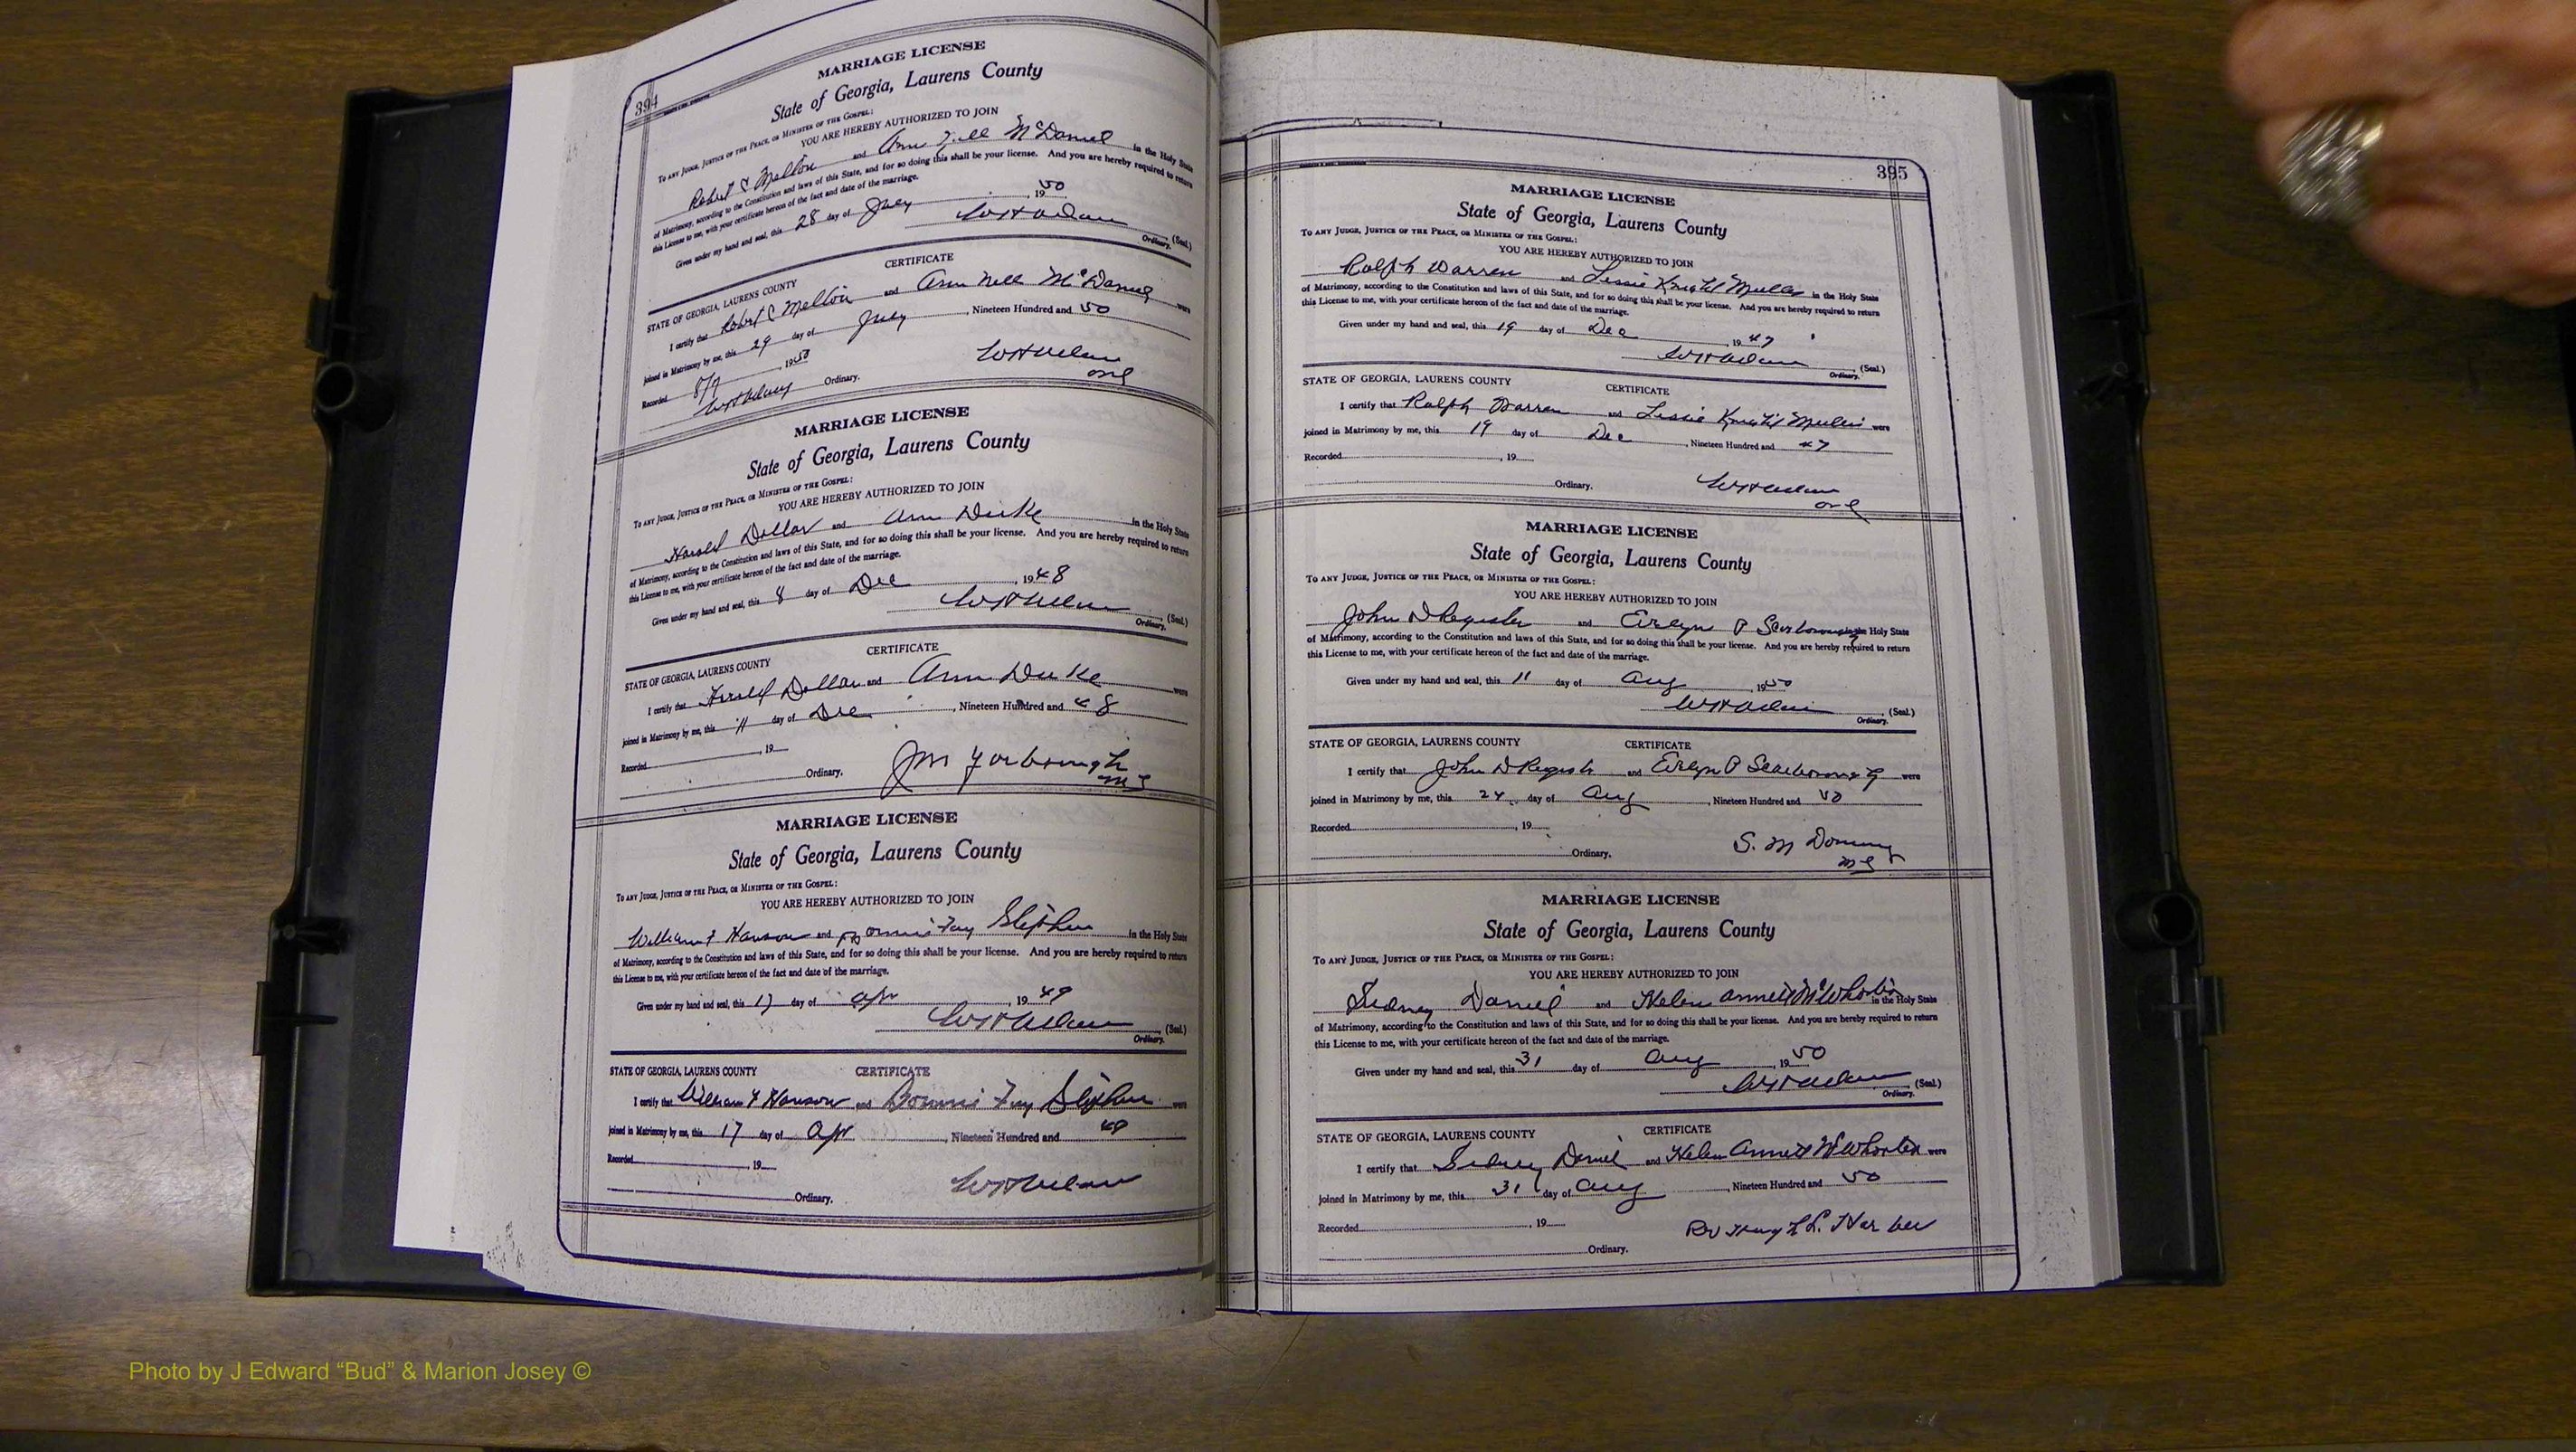 394
MARRIAGE LICENSE
State of Georgia, Laurens County
To any Judge, Justice of the Peace, or Minister of the Gospel:
YOU ARE HEREBY AUTHORIZED TO JOIN
Robert C Mellon and Ann Nell McDaniel in the Holy State
of Matrimony, according to the Constitution and laws of this State, and for so doing this shall be your license. And you are hereby required to return
this License to me, with your certificate hereon of the fact and date of the marriage.
Given under my hand and seal, this 28 day of July, 1950
(Seal.)
Ordinary.
CERTIFICATE
STATE OF GEORGIA, LAURENS COUNTY
I certify that Robert C Mellon and Ann Nell McDaniel were
joined in Matrimony by me, this 29 day of July, Nineteen Hundred and 50
Recorded 8/9, 1950
Ordinary.
MARRIAGE LICENSE
State of Georgia, Laurens County
To any Judge, Justice of the Peace, or Minister of the Gospel:
YOU ARE HEREBY AUTHORIZED TO JOIN
Harold Dollar and Ann Duke in the Holy State
of Matrimony, according to the Constitution and laws of this State, and for so doing this shall be your license. And you are hereby required to return
this License to me, with your certificate hereon of the fact and date of the marriage.
Given under my hand and seal, this 8 day of Dec, 1948
(Seal.)
Ordinary.
CERTIFICATE
STATE OF GEORGIA, LAURENS COUNTY
I certify that Harold Dollar and Ann Duke were
joined in Matrimony by me, this 11 day of Dec, Nineteen Hundred and 48
Recorded, 19
Ordinary. J M Yarborough
MG
MARRIAGE LICENSE
State of Georgia, Laurens County
To any Judge, Justice of the Peace, or Minister of the Gospel:
YOU ARE HEREBY AUTHORIZED TO JOIN
William F Hanson and Bonnie Fay in the Holy State
of Matrimony, according to the Constitution and laws of this State, and for so doing this shall be your license. And you are hereby required to return
this License to me, with your certificate hereon of the fact and date of the marriage.
Given under my hand and seal, this 17 day of Apr, 1949
(Seal.)
Ordinary.
STATE OF GEORGIA, LAURENS COUNTY CERTIFICATE
I certify that William F Hanson and Bonnie Fay were
joined in Matrimony by me, this 17 day of Apr, Nineteen Hundred and 49
Recorded, 19
Ordinary.
395
MARRIAGE LICENSE
State of Georgia, Laurens County
To any Judge, Justice of the Peace, or Minister of the Gospel:
YOU ARE HEREBY AUTHORIZED TO JOIN
Ralph Warren and Lessie Knight Mullis in the Holy State
of Matrimony, according to the Constitution and laws of this State, and for so doing this shall be your license. And you are hereby required to return
this License to me, with your certificate hereon of the fact and date of the marriage.
Given under my hand and seal, this 19 day of Dec, 1947
(Seal.)
Ordinary.
STATE OF GEORGIA, LAURENS COUNTY CERTIFICATE
I certify that Ralph Warren and Lessie Knight Mullis were
joined in Matrimony by me, this 19 day of Dec, Nineteen Hundred and 47
Recorded, 19
Ordinary.
MARRIAGE LICENSE
State of Georgia, Laurens County
To any Judge, Justice of the Peace, or Minister of the Gospel:
YOU ARE HEREBY AUTHORIZED TO JOIN
John D Register and Evelyn P Scarborough in the Holy State
of Matrimony, according to the Constitution and laws of this State, and for so doing this shall be your license. And you are hereby required to return
this License to me, with your certificate hereon of the fact and date of the marriage.
Given under my hand and seal, this 11 day of Aug, 1950
(Seal.)
Ordinary.
STATE OF GEORGIA, LAURENS COUNTY CERTIFICATE
I certify that John D Register and Evelyn P Scarborough were
joined in Matrimony by me, this 24 day of Aug, Nineteen Hundred and 50
Recorded, 19
Ordinary. S. M
MG
MARRIAGE LICENSE
State of Georgia, Laurens County
To any Judge, Justice of the Peace, or Minister of the Gospel:
YOU ARE HEREBY AUTHORIZED TO JOIN
Sidney Daniel and Helen Annett McWhorter in the Holy State
of Matrimony, according to the Constitution and laws of this State, and for so doing this shall be your license. And you are hereby required to return
this License to me, with your certificate hereon of the fact and date of the marriage.
Given under my hand and seal, this 31 day of Aug, 1950
(Seal.)
Ordinary.
STATE OF GEORGIA, LAURENS COUNTY CERTIFICATE
I certify that Sidney Daniel and Helen Annett McWhorter were
joined in Matrimony by me, this 31 day of Aug, Nineteen Hundred and 50
Recorded, 19
Ordinary.
Photo by J Edward “Bud” & Marion Josey ©